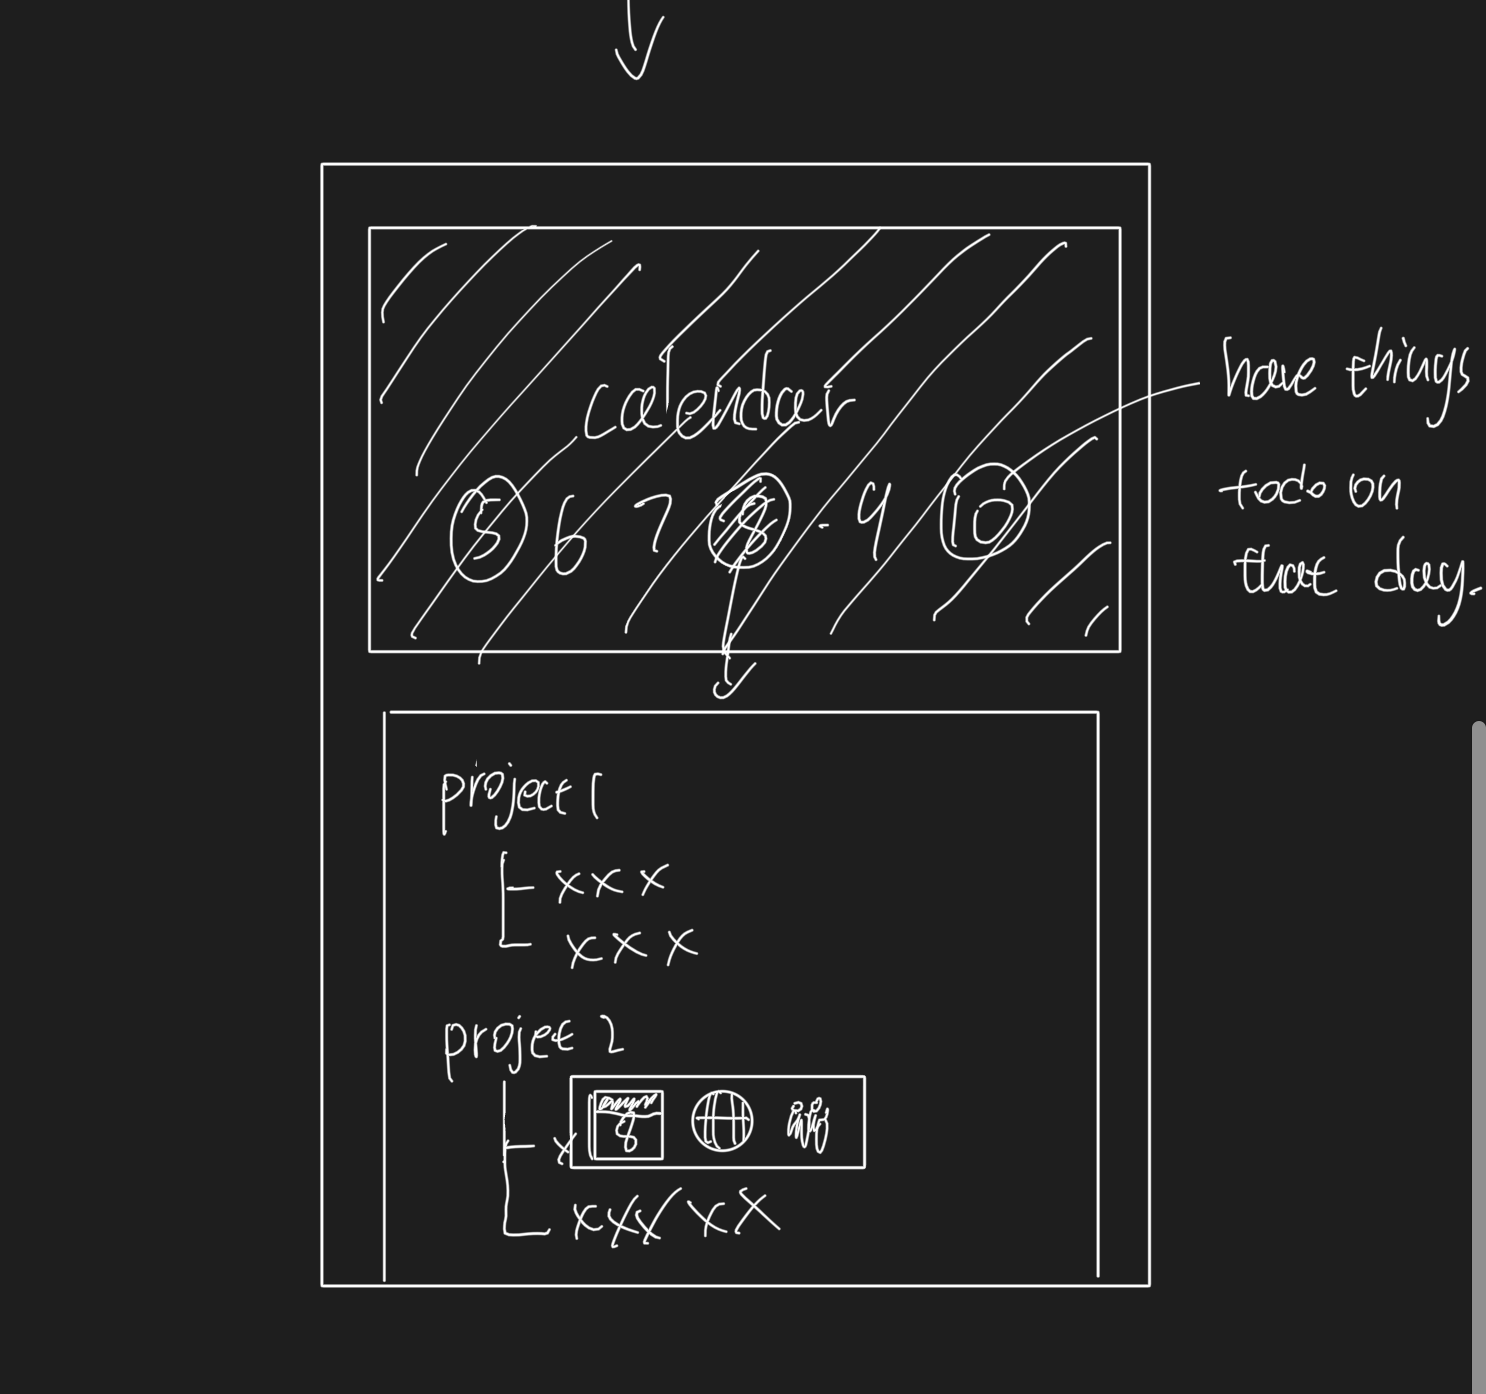 calendar
5 6 7 8 9 10
have things
todo on
that day.
project 1
xxx
xxx
projet 2
x
8
xxxxx